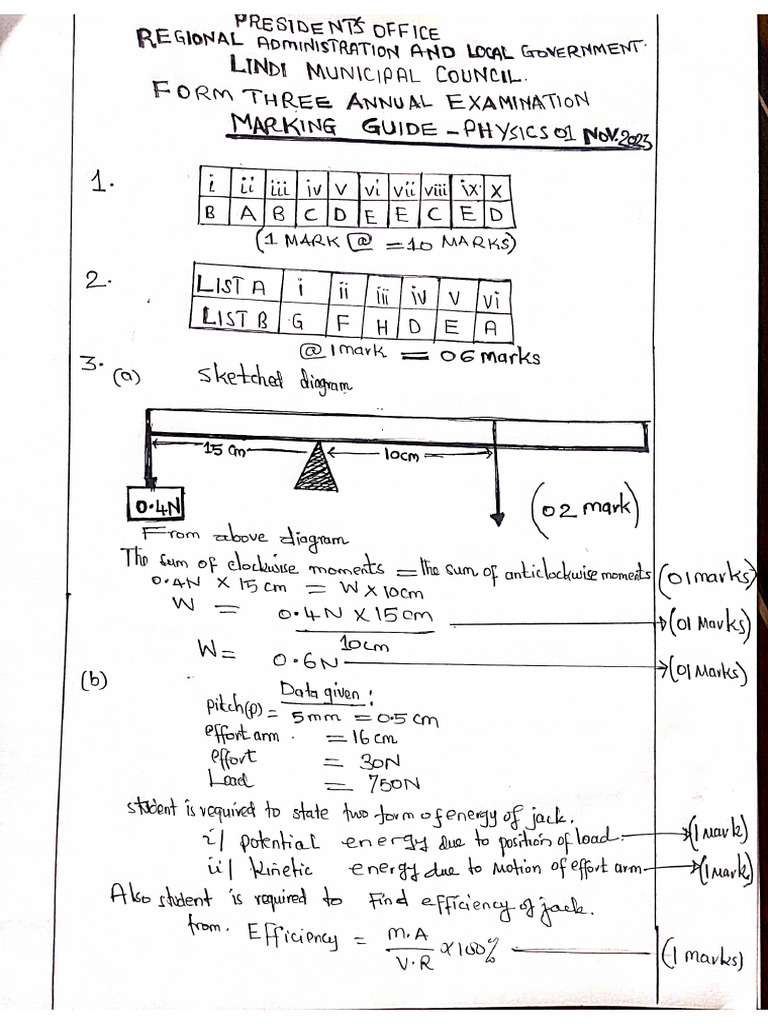 PRESIDENT'S OFFICE
REGIONAL ADMINISTRATION AND LOCAL GOVERNMENT.
LINDI MUNICIPAL COUNCIL.
FORM THREE ANNUAL EXAMINATION
MARKING GUIDE - PHYSICS 01 NOV. 2023
1.
i ii iii iv v vi vii viii ix x
B A B C D E E C E D
(1 MARK @ = 10 MARKS)
2.
LIST A i ii iii iv v vi
LIST B G F H D E A
@ 1 mark = 06 marks
3. (a) Sketched diagram
15 cm 10cm
0.4N
(02 mark)
From above diagram
The sum of clockwise moments = the sum of anticlockwise moments (01 marks)
0.4N X 15 cm = W X 10cm
W = 0.4N X 15 cm (01 Marks)
10cm
W = 0.6N (01 Marks)
(b) Data given:
pitch(p) = 5mm = 0.5 cm
effort arm . = 16 cm
effort = 30N
Load = 750N
student is required to state two form of energy of jack.
i/ potential energy due to position of load. (1 mark)
ii/ kinetic energy due to Motion of effort arm (1 mark)
Also student is required to Find efficiency of jack.
from. Efficiency = M.A
V.R X 100% (1 marks)